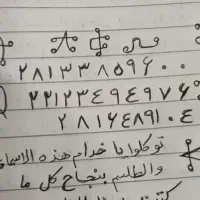 ٢٨١٣٣٨٥٩٦٠٠
٢٢١٢٣٤٩٤٩٧٦
٢٨١٦٤٨٩١٠٤
توكلوا يا خدام هذه الاسما
والطلسم بنجاح كل ما